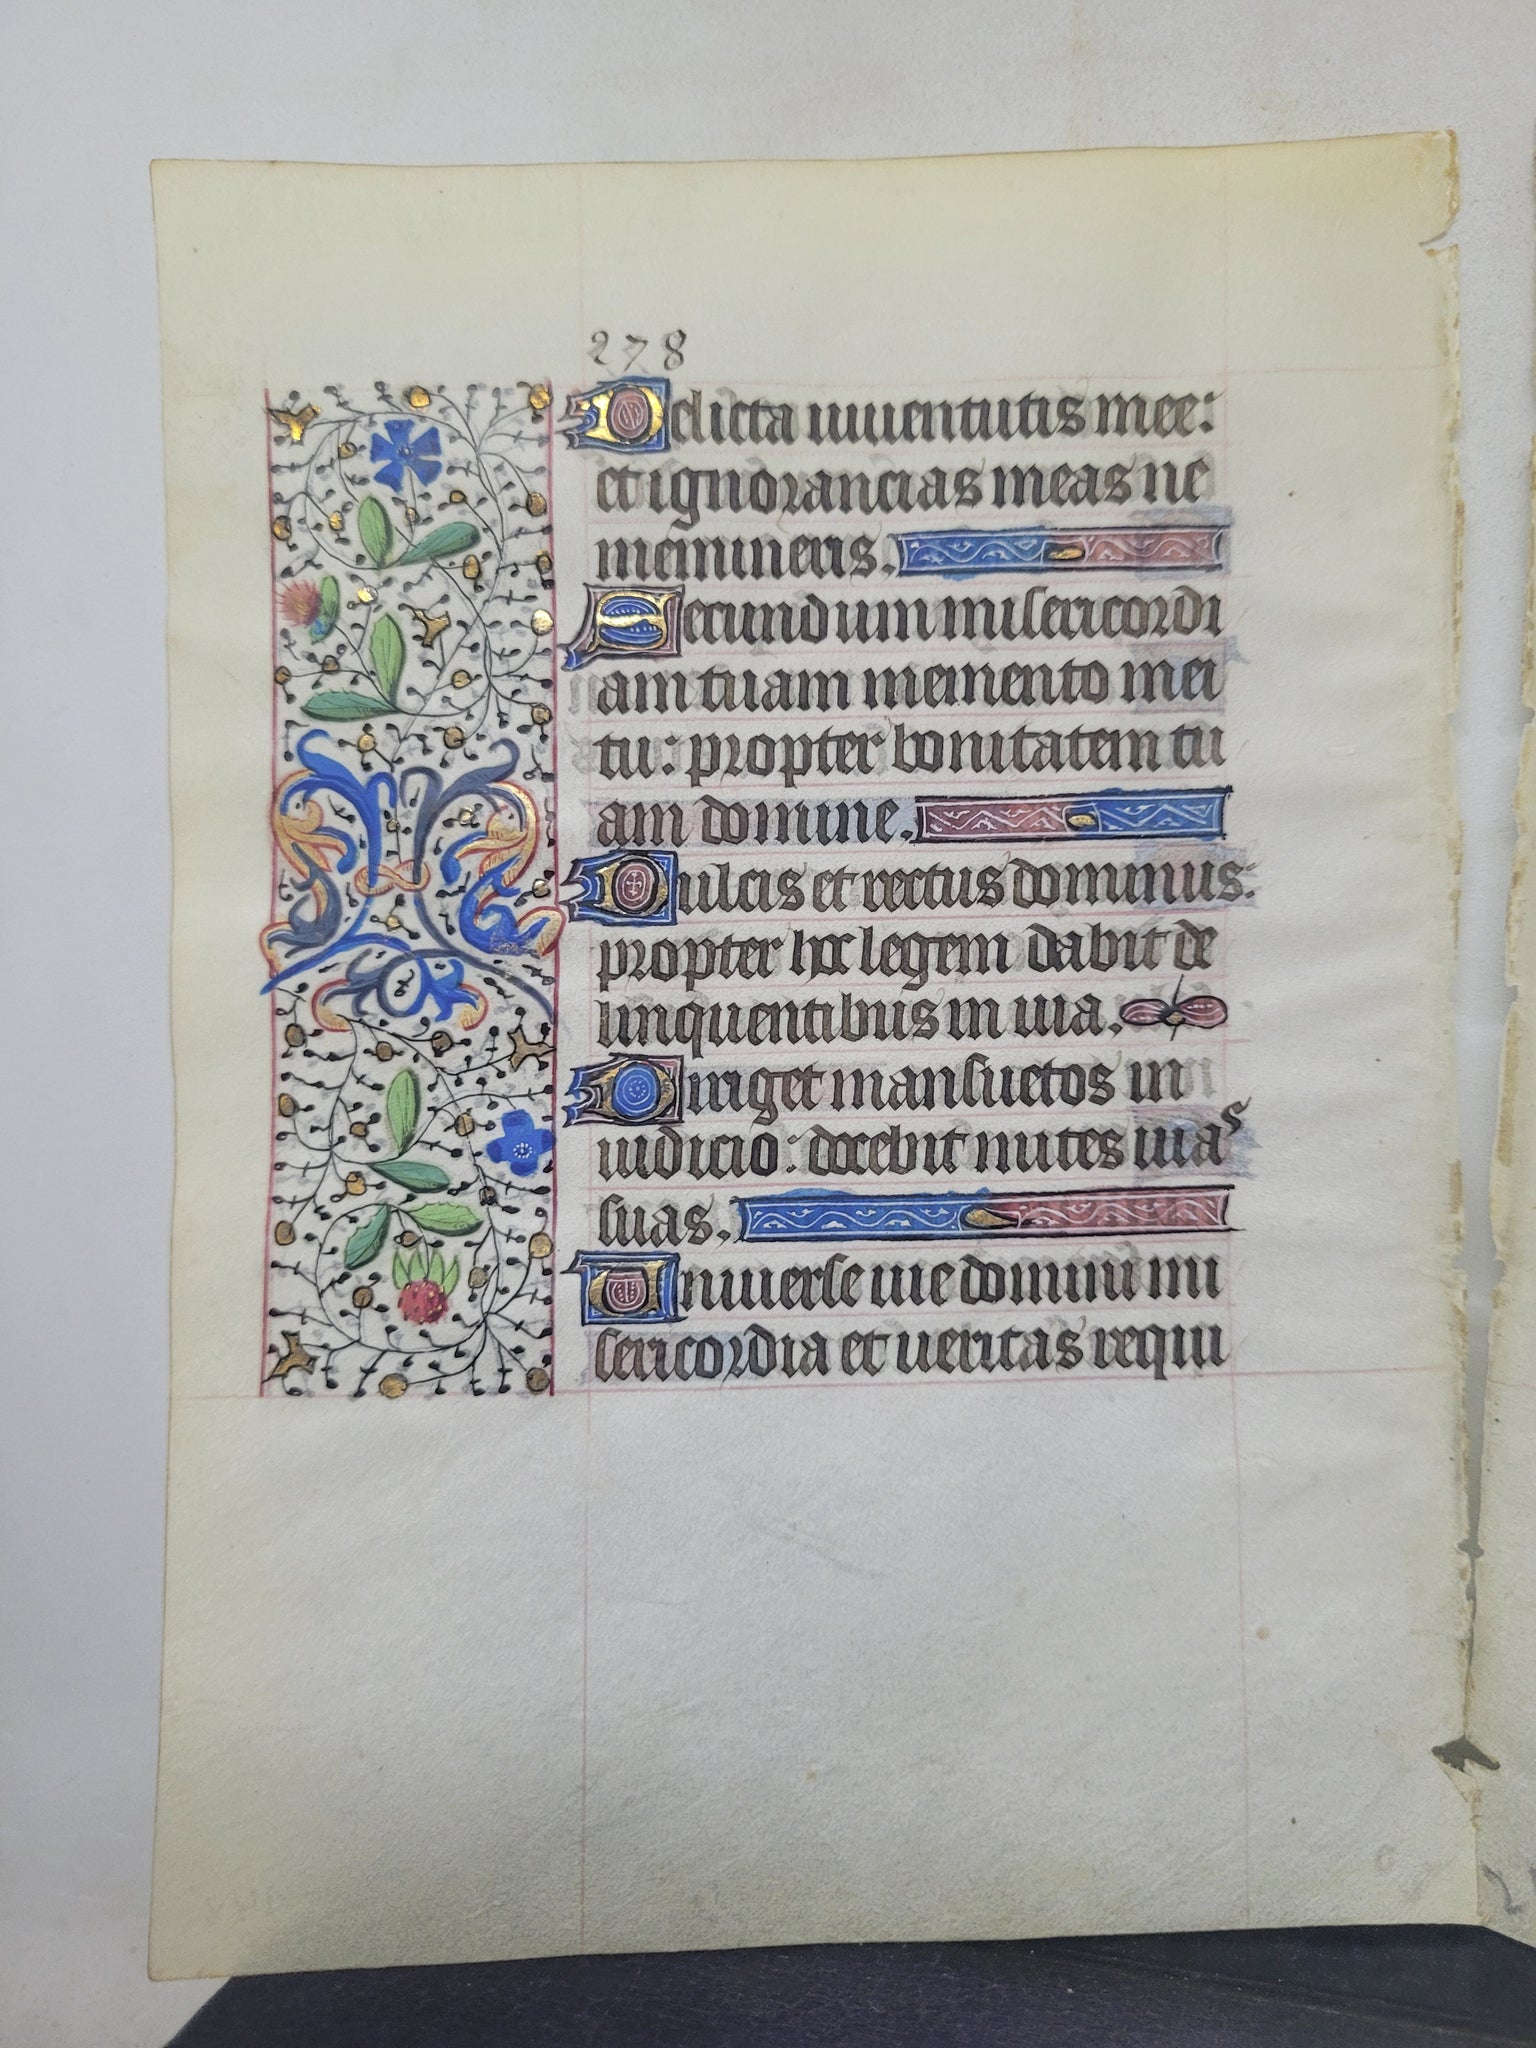 278
Delicta iuuentutis mee:
et ignorancias meas ne
memineris.
Secundum misericordi
am tuam memento mei
tu: propter bonitatem tu
am domine.
Dulcis et rectus dominus:
propter hoc legem dabit de
linquentibus in uia.
Diriget mansuetos in
iudicio: docebit mites uias
suas.
Uniuerse uie domini mi
sericordia et ueritas requi